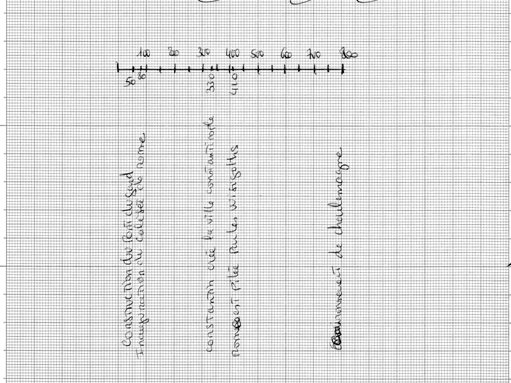 100 200 300 400 500 600 700 800
50 80 330 410
Construction du Pont du Gard
Inauguration du Colisée à Rome
Constantin crée la ville Constantinople
Rome est pillée par les Wisigoths
Couronnement de Charlemagne